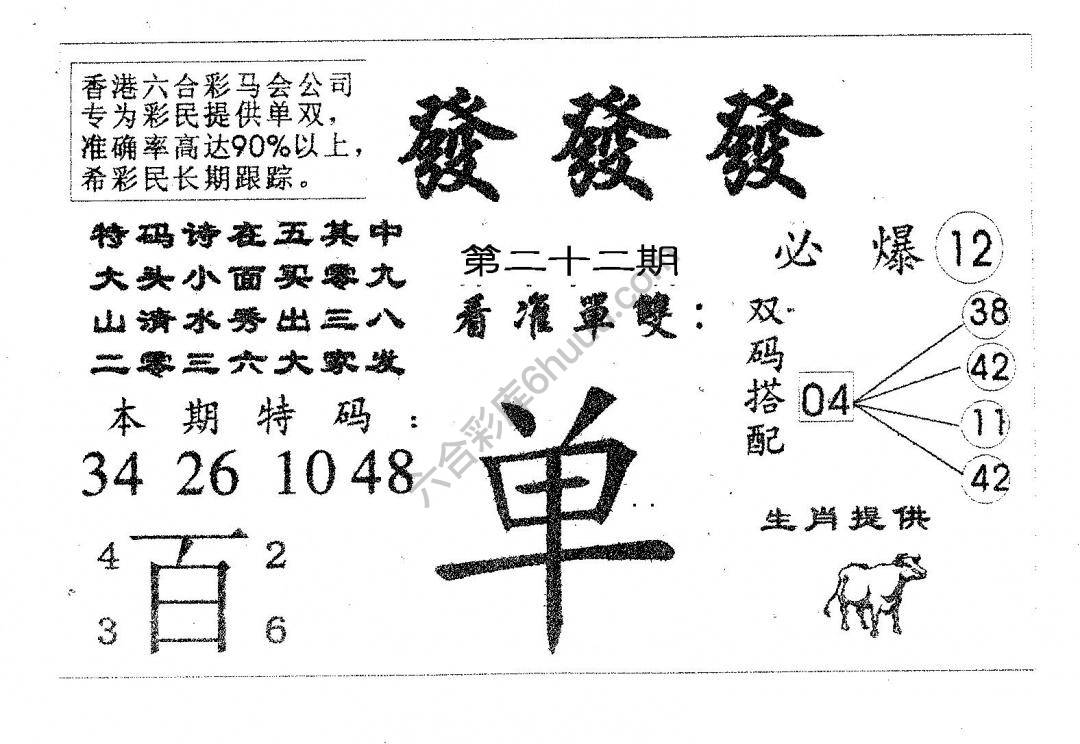 香港六合彩马会公司
专为彩民提供单双，
准确率高达90%以上，
希彩民长期跟踪。
發 發 發
特码诗在五其中
大头小面买零九
山清水秀出三八
二零三六大家发
第二十二期
看准單雙：
单
必爆 12
双码搭配
04
38
42
11
42
本期特码：
34 26 10 48
4 百 2
3 6
生肖提供
六合彩库6huu.com